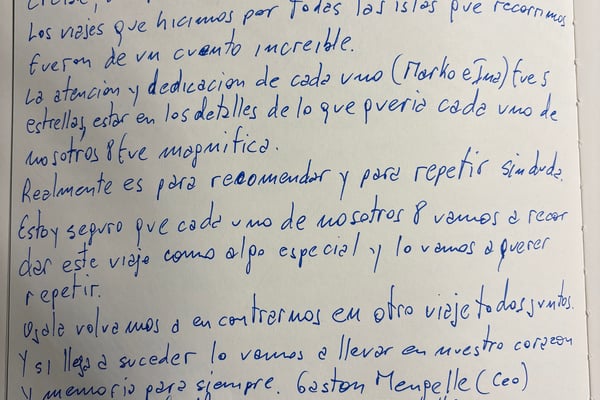 Los viajes que hicimos por todas las islas que recorrimos
fueron de un cuento increible.
La atencion y dedicacion de cada uno (Marko e Ima) fue 5
estrellas, estar en los detalles de lo que queria cada uno de
nosotros 8 fue magnifica.
Realmente es para recomendar y para repetir sin duda.
Estoy seguro que cada uno de nosotros 8 vamos a recor
dar este viaje como algo especial y lo vamos a querer
repetir.
Ojala volvamos a encontrarnos en otro viaje todos juntos.
Y si llega a suceder lo vamos a llevar en nuestro corazon
y memoria para siempre. Gaston Mengelle (Ceo)